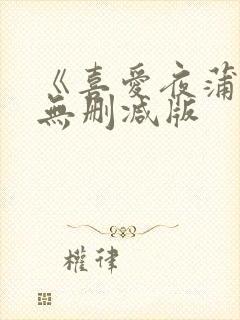 《喜爱夜蒲
無删减版
權律